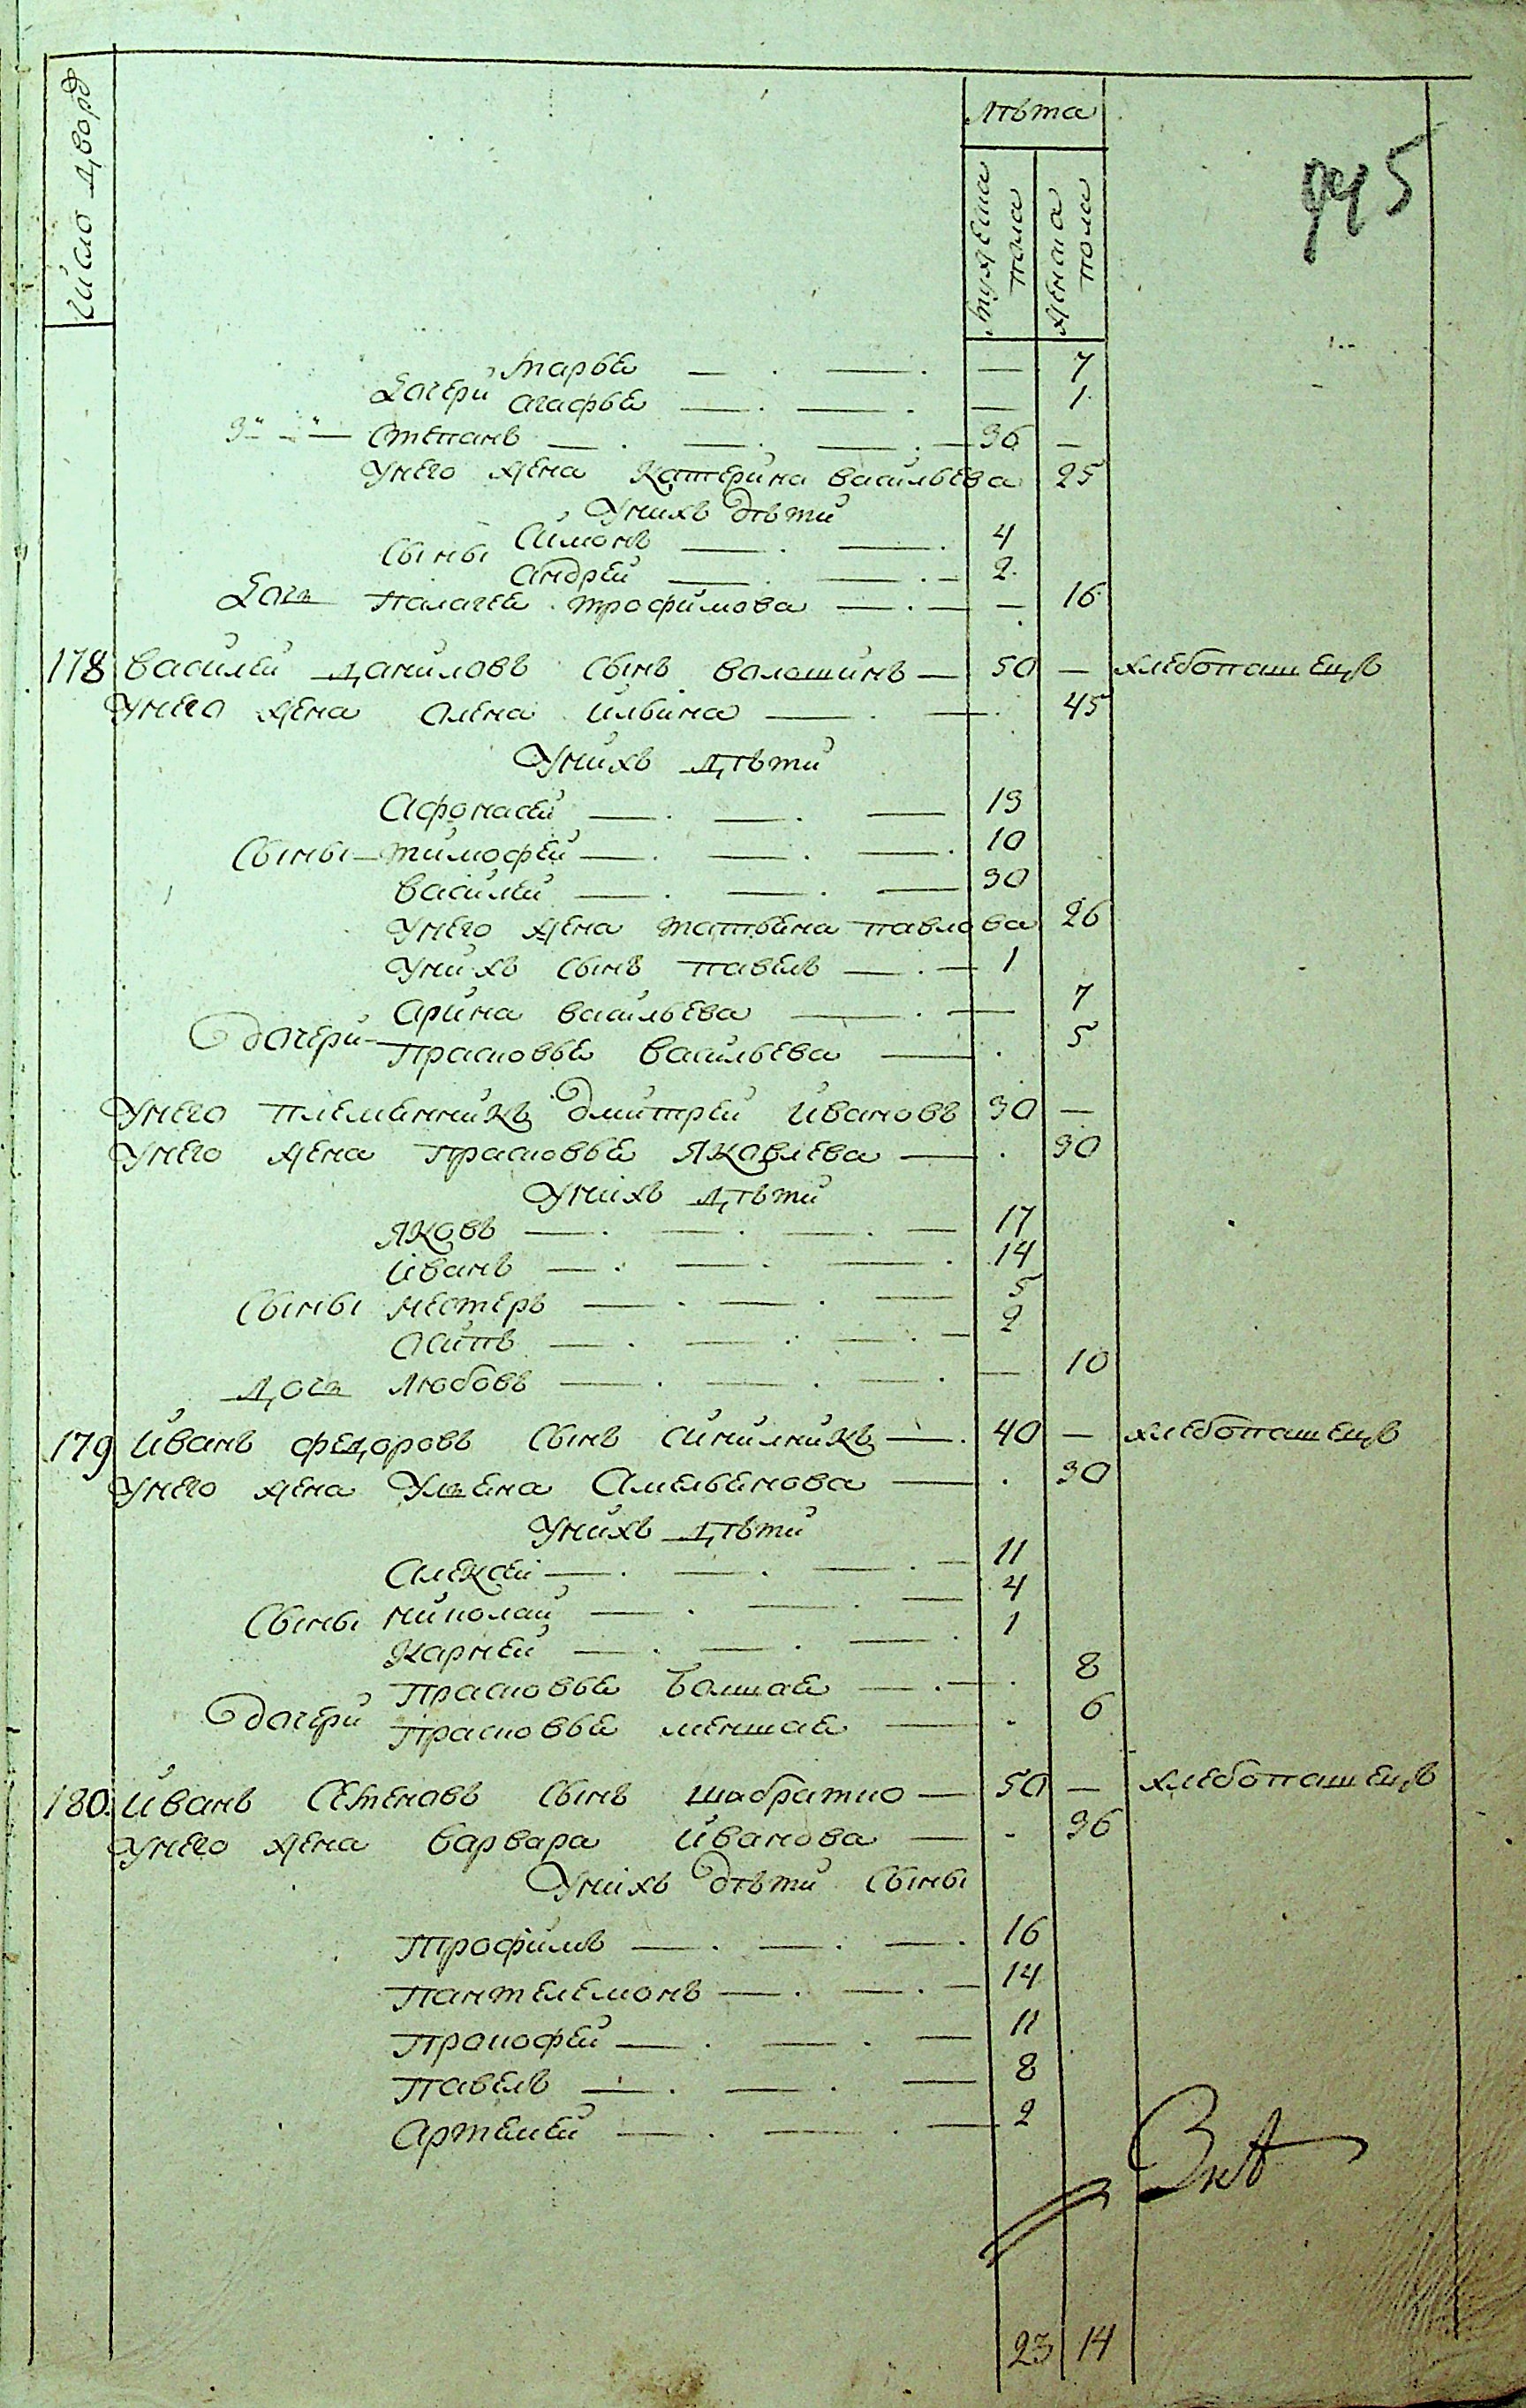 Число дворо
Лѣта
мужеска пола
женска пола
445
Дочери Марье — — — 7
Агафье — — — 1
3й — Степанъ — — — 36 —
У него жена Катерина Васильева 25
У нихъ дѣти
Сыны Симонъ — — 4
Андрей — — 2
Дочь Палагее Трофимова — — — 16
178 Василей Даниловъ сынъ Волошинъ — 50 — хлебопашецъ
У него жена Олена Ильина — — 45
У нихъ дѣти
Афонасей — — — 19
Сыны — Тимофей — — — 10
Василей — — — 30
У него жена Татьвена Павлова 26
У нихъ сынъ Павелъ — — 1
Дочери — Арина Васильева — — 7
Прасковье Васильева — 5
У него племенникъ Дмитрей Ивановъ 30 —
У него жена Прасковье Яковлева — 30
У нихъ дѣти
Яковъ — — — — 17
Иванъ — — — 14
Сыны Нестеръ — — — 5
Осипъ — — — — 2
Дочь Любовь — — — — 10
179 Иванъ Федоровъ сынъ Синилникъ — 40 — хлебопашецъ
У него жена Ульена Омельенова — 30
У нихъ дѣти
Алексей — — — — 11
Сыны Николай — — — 4
Карней — — — 1
Дочери Прасковье болшае — — 8
Прасковье меншае — 6
180. Иванъ Семеновъ сынъ Шабратко — 50 — хлебопашецъ
У него жена Варвара Иванова — 36
У нихъ дѣти сыны
Трофимъ — — — 16
Пантелемонъ — — — 14
Прокофей — — — 11
Павелъ — — — 8
Артемей — — — 2
23 14